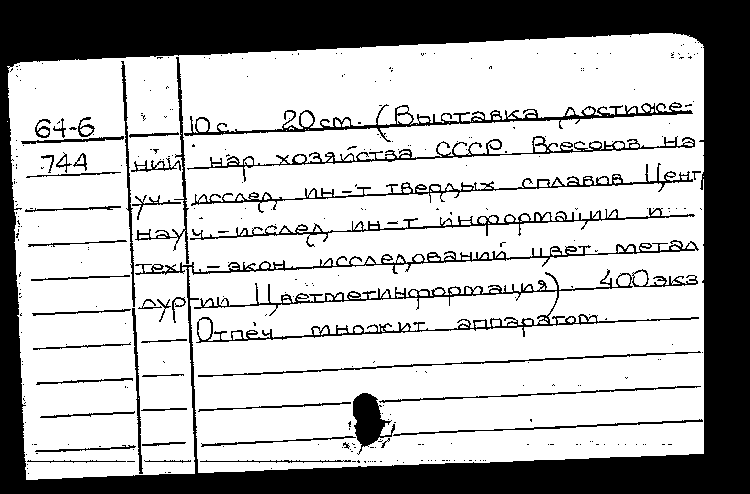 64-6 10 с. 20 см. (Выставка достиже-
744 ний нар. хозяйства СССР. Всесоюз. на-
уч.-исслед. ин-т твердых сплавов Цент
науч.-исслед. ин-т информации и
техн.-экон. исследований цвет. метал
лургии Цветметинформация). 400 экз.
Отпеч. множит. аппаратом.